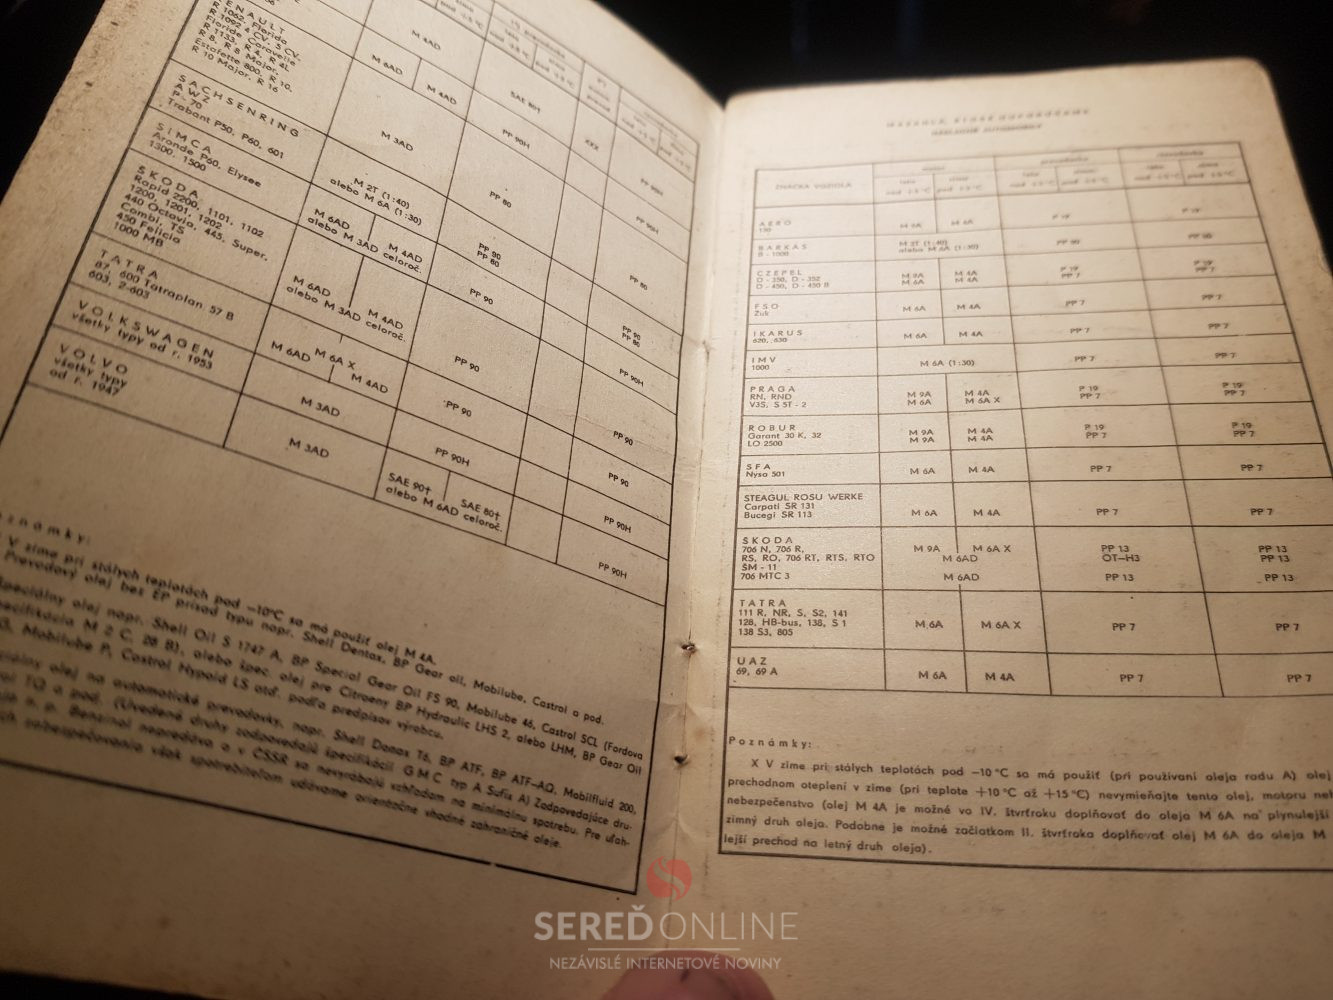 RENAULT
R 1062, Florida
R 1092 4 CV, 5 CV,
Floride Caravelle
R 1133, R 4, R 4L
R 8, R 8 Major,
Estafette 800, R 10,
R 10 Major, R 16
M 4AD
M 6AD M 4AD
SAE 80†
XXX
PP 90H
SACHSENRING
AWZ
P - 70
Trabant P50, P60, 601
M 3AD
PP 90H
PP 90H
SIMCA
Aronde P60, Elysee
1300, 1500
M 2T (1:40)
alebo M 6A (1:30)
PP 80
PP 80
ŠKODA
Rapid 2200, 1101, 1102
1200, 1201, 1202
440 Octavia, 445, Super,
Combi, TS
450 Felicia
1000 MB
M 6AD M 4AD
alebo M 3AD celoroč.
PP 90
PP 80
PP 90
PP 80
M 6AD M 4AD
alebo M 3AD celoroč.
PP 90
PP 90H
TATRA
87, 600 Tatraplan 57 B
603, 2-603
M 6A X
M 6AD M 4AD
PP 90
PP 90
PP 90
PP 90
VOLKSWAGEN
všetky typy od r. 1953
M 3AD
PP 90H
PP 90H
VOLVO
všetky typy
od r. 1947
M 3AD
SAE 90† SAE 80†
alebo M 6AD celoroč.
PP 90H
Poznámky:
V zime pri stálych teplotách pod −10°C sa má použiť olej M 4A.
Prevodový olej bez EP prísad typu napr. Shell Dentax, BP Gear oil, Mobilube, Castrol a pod.
Špeciálny olej napr. Shell Oil S 1747 A, BP Special Gear Oil FS 90, Mobilube 46, Castrol SCL (Fordova
špecifikácia M 2 C, 28 B), alebo špec. olej pre Citroeny BP Hydraulic LHS 2, alebo LHM, BP Gear Oil
Mobilube P, Castrol Hypoid LS atď. podľa predpisov výrobcu.
olej na automatické prevodovky, napr. Shell Donax T6, BP ATF, BP ATF-AQ, Mobilfluid 200,
TQ a pod. (Uvedené druhy zodpovedajú špecifikácii GMC typ A Sufix A) Zodpovedajúce dru-
n. p. Benzinol nepredáva a v ČSSR sa nevyrábajú vzhľadom na minimálnu spotrebu. Pre uľah-
zabezpečovania však spotrebiteľom udávame orientačne vhodné zahraničné oleje.
NÁKLADNÉ AUTOMOBILY
ZNAČKA VOZIDLA
motor prevodovka rozvodovka
leto zima leto zima leto zima
nad +5 °C pod +5 °C nad +5 °C pod +5 °C nad +5 °C pod +5 °C
AERO
150 M 6A M 4A P 19 P 19
BARKAS
B - 1000 M 2T (1:40)
alebo M 6A (1:30) PP 90 PP 90
CZEPEL
D - 350, D - 352 M 9A M 4A P 19 P 19
D - 450, D - 450 B M 6A M 4A PP 7 PP 7
FSO
Žuk M 6A M 4A PP 7 PP 7
IKARUS
620, 630 M 6A M 4A PP 7 PP 7
IMV
1000 M 6A (1:30) PP 7 PP 7
PRAGA
RN, RND M 9A M 4A P 19 P 19
V3S, S 5T - 2 M 6A M 6A X PP 7 PP 7
ROBUR
Garant 30 K, 32 M 9A M 4A P 19 P 19
LO 2500 M 9A M 4A PP 7 PP 7
SFA
Nysa 501 M 6A M 4A PP 7 PP 7
STEAGUL ROSU WERKE
Carpati SR 131
Bucegi SR 113 M 6A M 4A PP 7 PP 7
ŠKODA
706 N, 706 R, M 9A M 6A X PP 13 PP 13
RS, RO, 706 RT, RTS, RTO M 6AD OT–H3 PP 13
ŠM - 11
706 MTC 3 M 6AD PP 13 PP 13
TATRA
111 R, NR, S, S2, 141
128, HB-bus, 138, S 1 M 6A M 6A X PP 7 PP 7
138 S3, 805
UAZ
69, 69 A M 6A M 4A PP 7 PP 7
Poznámky:
X V zime pri stálych teplotách pod −10 °C sa má použiť (pri používaní oleja radu A) olej
prechodnom oteplení v zime (pri teplote +10 °C až +15 °C) nevymieňajte tento olej, motoru
nebezpečenstvo (olej M 4A je možné vo IV. štvrťroku doplňovať do oleja M 6A na plynulejší
zimný druh oleja. Podobne je možné začiatkom II. štvrťroka doplňovať olej M 6A do oleja M
lejší prechod na letný druh oleja).
SEREĎONLINE
NEZÁVISLÉ INTERNETOVÉ NOVINY